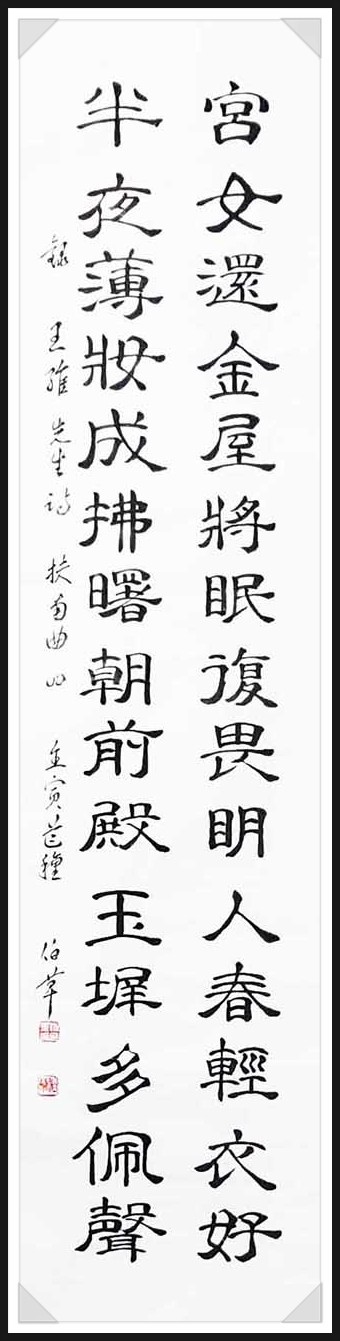 宮女還金屋將眠復畏眀人春輕衣好
半夜薄妝成拂曙朝前殿玉墀多佩聲
錄 王維 先生詩 扶南曲 四 壬寅芒種 伯